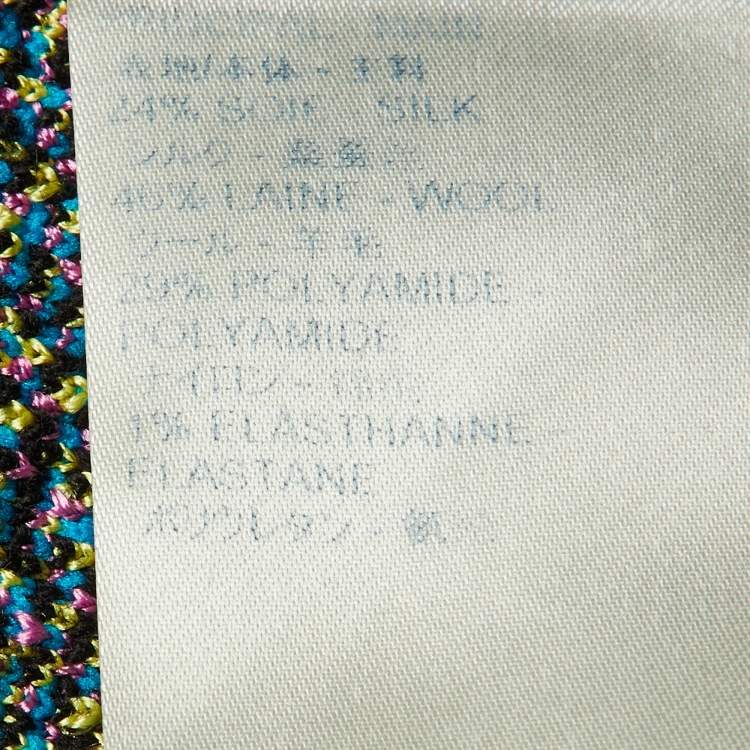 PRINCIPAL - MAIN
表地/本体 - 主料
24% SOIE - SILK
シルク - 桑蚕丝
46% LAINE - WOOL
ウール - 羊毛
29% POLYAMIDE -
POLYAMIDE
ナイロン - 锦纶
1% ELASTHANNE -
ELASTANE
ポリウレタン - 氨